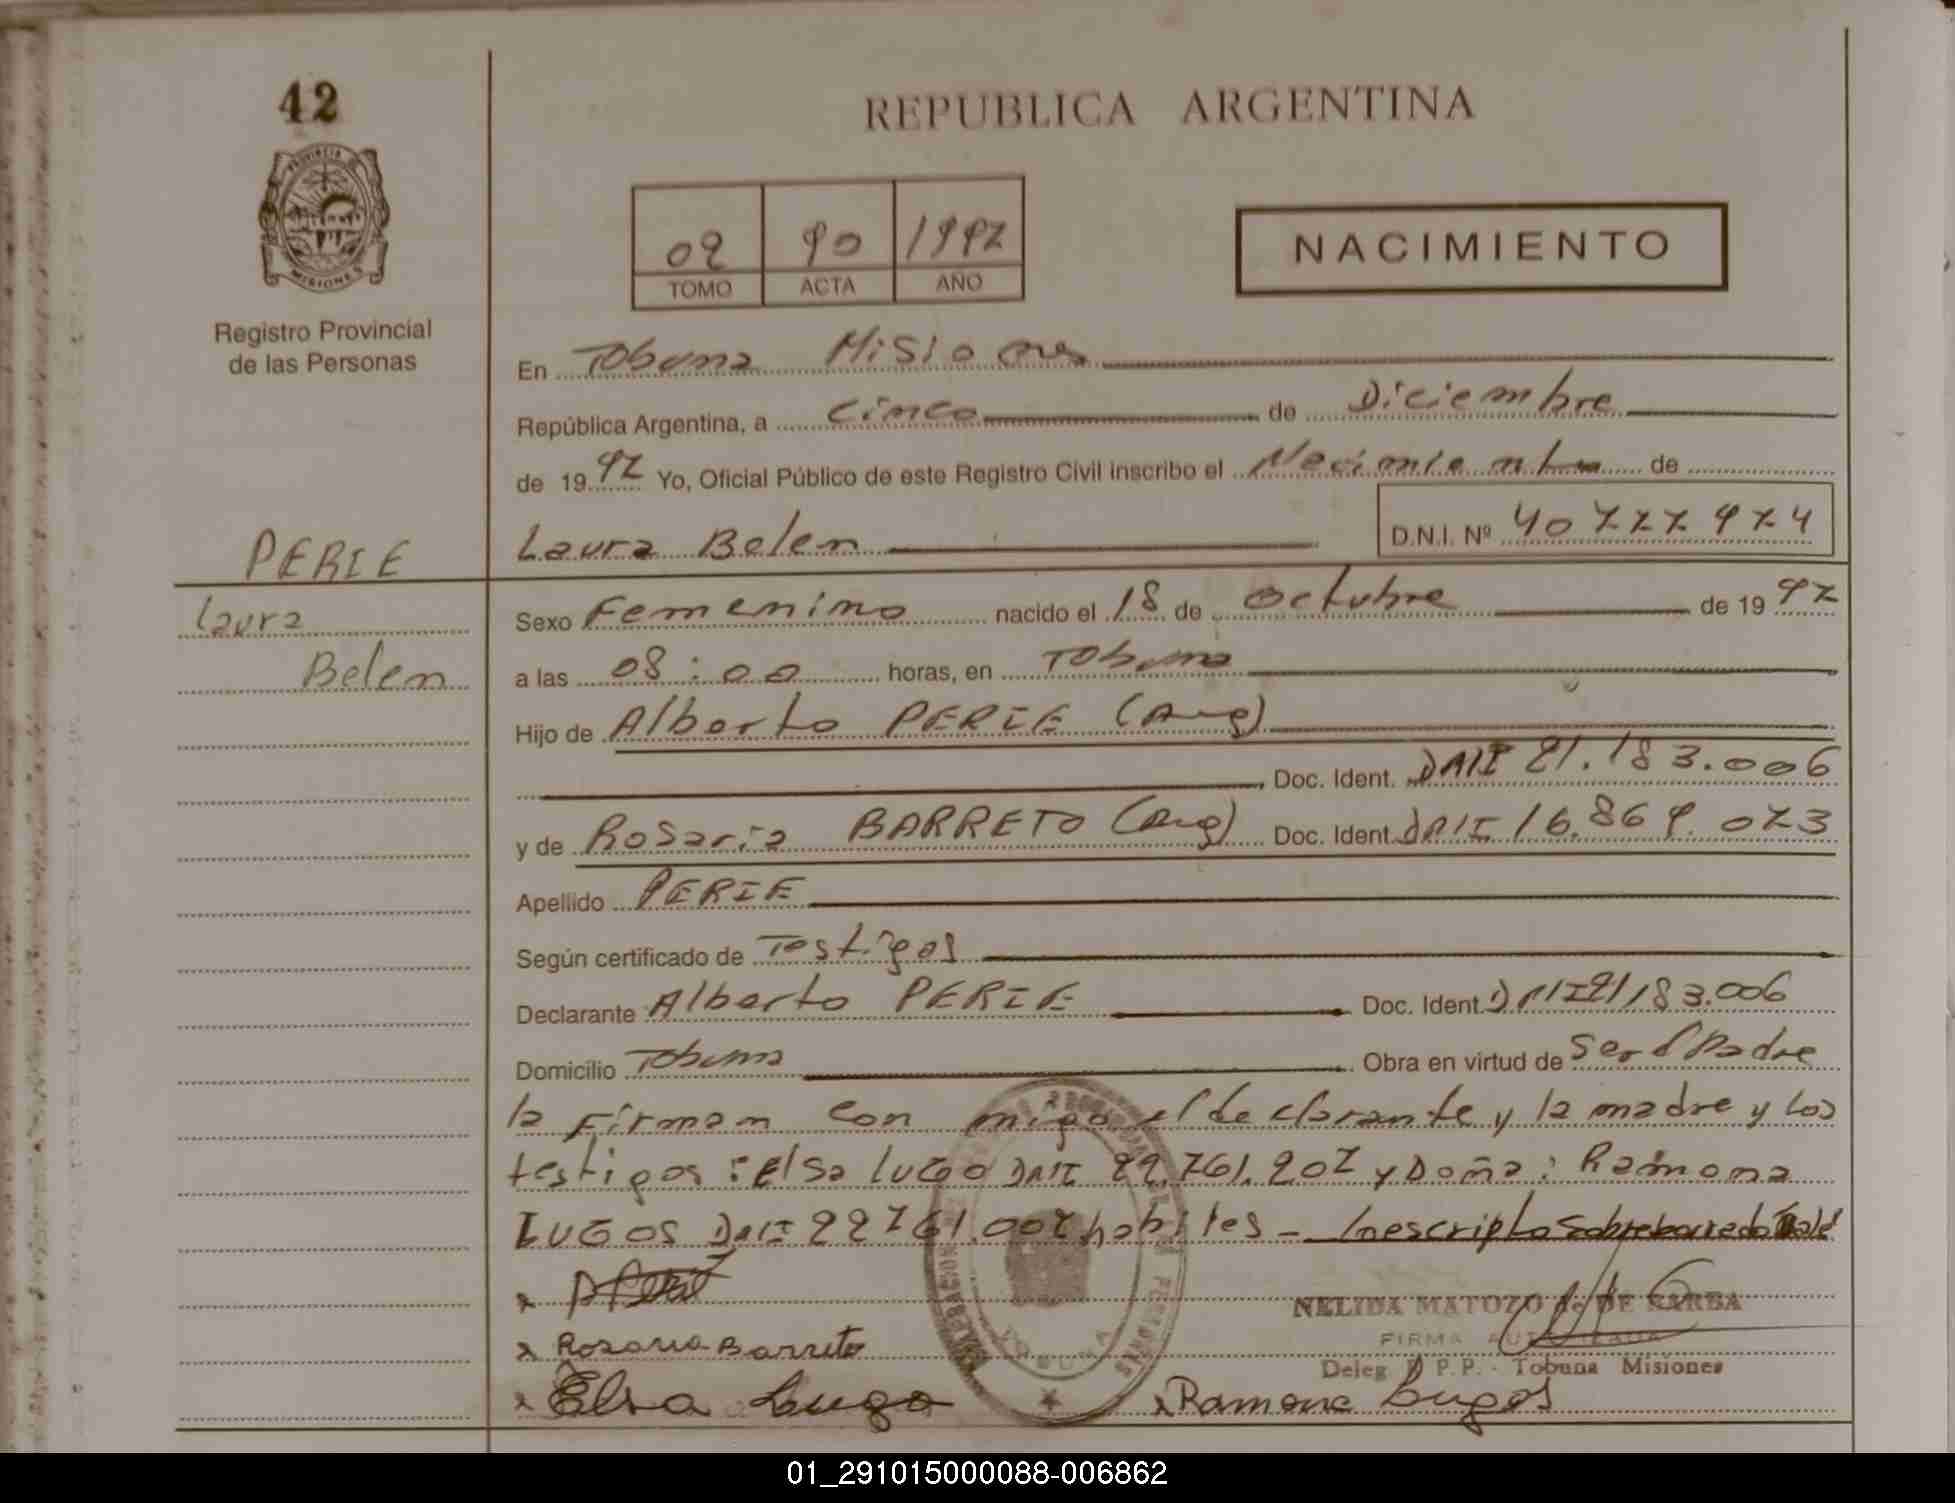 42
REPUBLICA ARGENTINA
PROVINCIA DE
MISIONES
02 90 1997
TOMO ACTA AÑO
NACIMIENTO
Registro Provincial
de las Personas
En Tobuna Misiones
República Argentina, a Cinco de Diciembre
de 1997 Yo, Oficial Público de este Registro Civil inscribo el Nacimiento de
PERIE
Laura Belen D.N.I. Nº 40777974
Laura
Belen
Sexo Femenino nacido el 18 de Octubre de 1997
a las 08:00 horas, en Tobuna
Hijo de Alberto PERIE (Arg)
Doc. Ident. DNI 21.183.006
y de Rosaria BARRETO (Arg) Doc. Ident. DNI 16.869.073
Apellido PERIE
Según certificado de Testigos
Declarante Alberto PERIE Doc. Ident. DNI 21.183.006
Domicilio Tobuna Obra en virtud de Ser el Padre
la firman con migo el declarante y la madre y los
testigos: Elsa LUGO DNI 22.761.207 y Doña: Ramona
LUGOS DNI 22761.007 habiles - Inescripto sobreborrado Vale
x
x Rosaria Barreto
x Elsa Lugo
x Ramona Lugos
NELIDA MATOZO de DE BARBA
FIRMA AUTORIZADA
Deleg. R.P.P. - Tobuna Misiones
TOBUNA
01_291015000088-006862